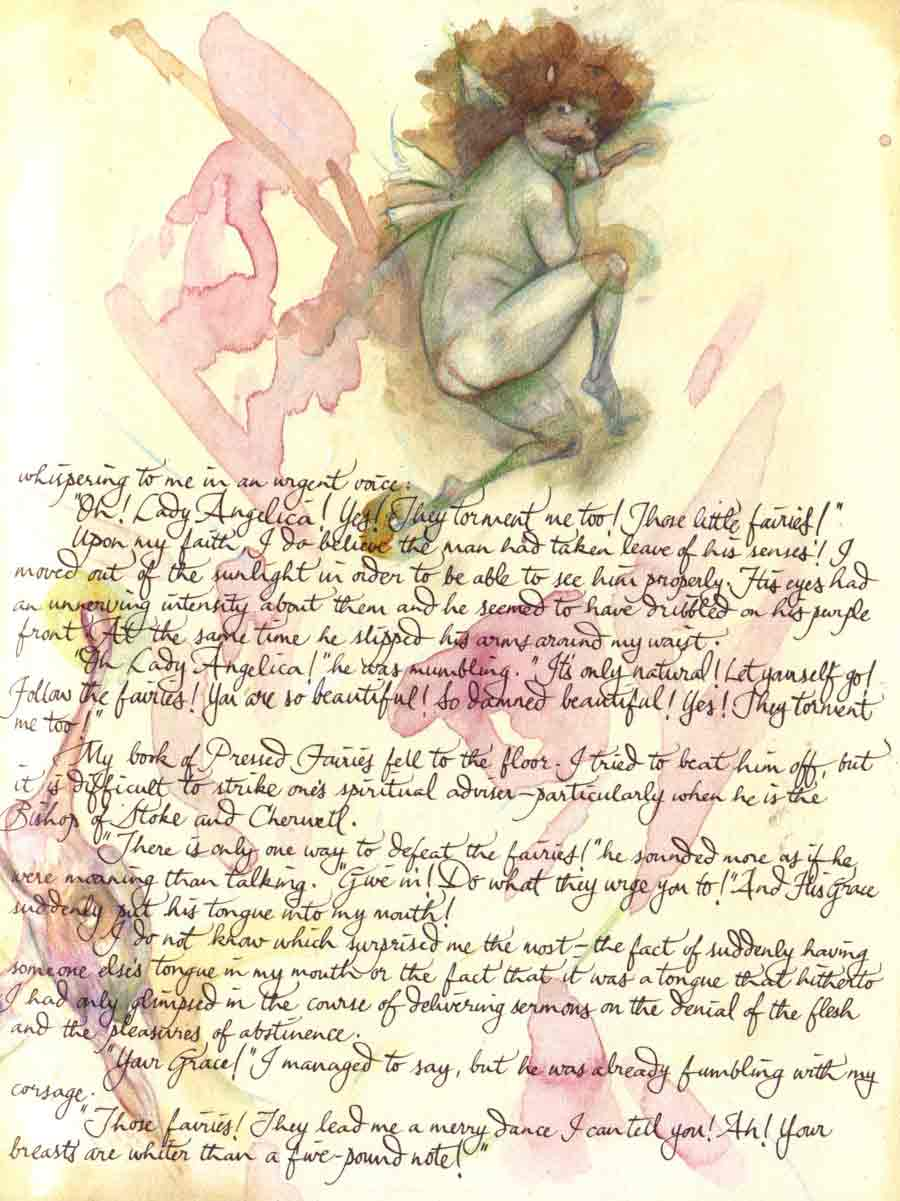 whispering to me in an urgent voice:
"Oh! Lady Angelica! Yes! They torment me too! Those little fairies!"
Upon my faith, I do believe the man had taken leave of his senses! I
moved out of the sunlight in order to be able to see him properly. His eyes had
an unnerving intensity about them and he seemed to have dribbled on his purple
front. At the same time he slipped his arms around my waist.
"Oh Lady Angelica!" he was mumbling. "It's only natural! Let yourself go!
Follow the fairies! You are so beautiful! So damned beautiful! Yes! They torment
me too!"
My book of Pressed Fairies fell to the floor. I tried to beat him off, but
it is difficult to strike one's spiritual adviser – particularly when he is the
Bishop of Stoke and Cherwell.
"There is only one way to defeat the fairies!" he sounded more as if he
were moaning than talking. "Give in! Do what they urge you to!" And His Grace
suddenly put his tongue into my mouth!
I do not know which surprised me the most – the fact of suddenly having
someone else's tongue in my mouth or the fact that it was a tongue that hitherto
I had only glimpsed in the course of delivering sermons on the denial of the flesh
and the pleasures of abstinence.
"Your Grace!" I managed to say, but he was already fumbling with my
corsage.
"Those fairies! They lead me a merry dance I can tell you! Ah! Your
breasts are whiter than a five-pound note!"